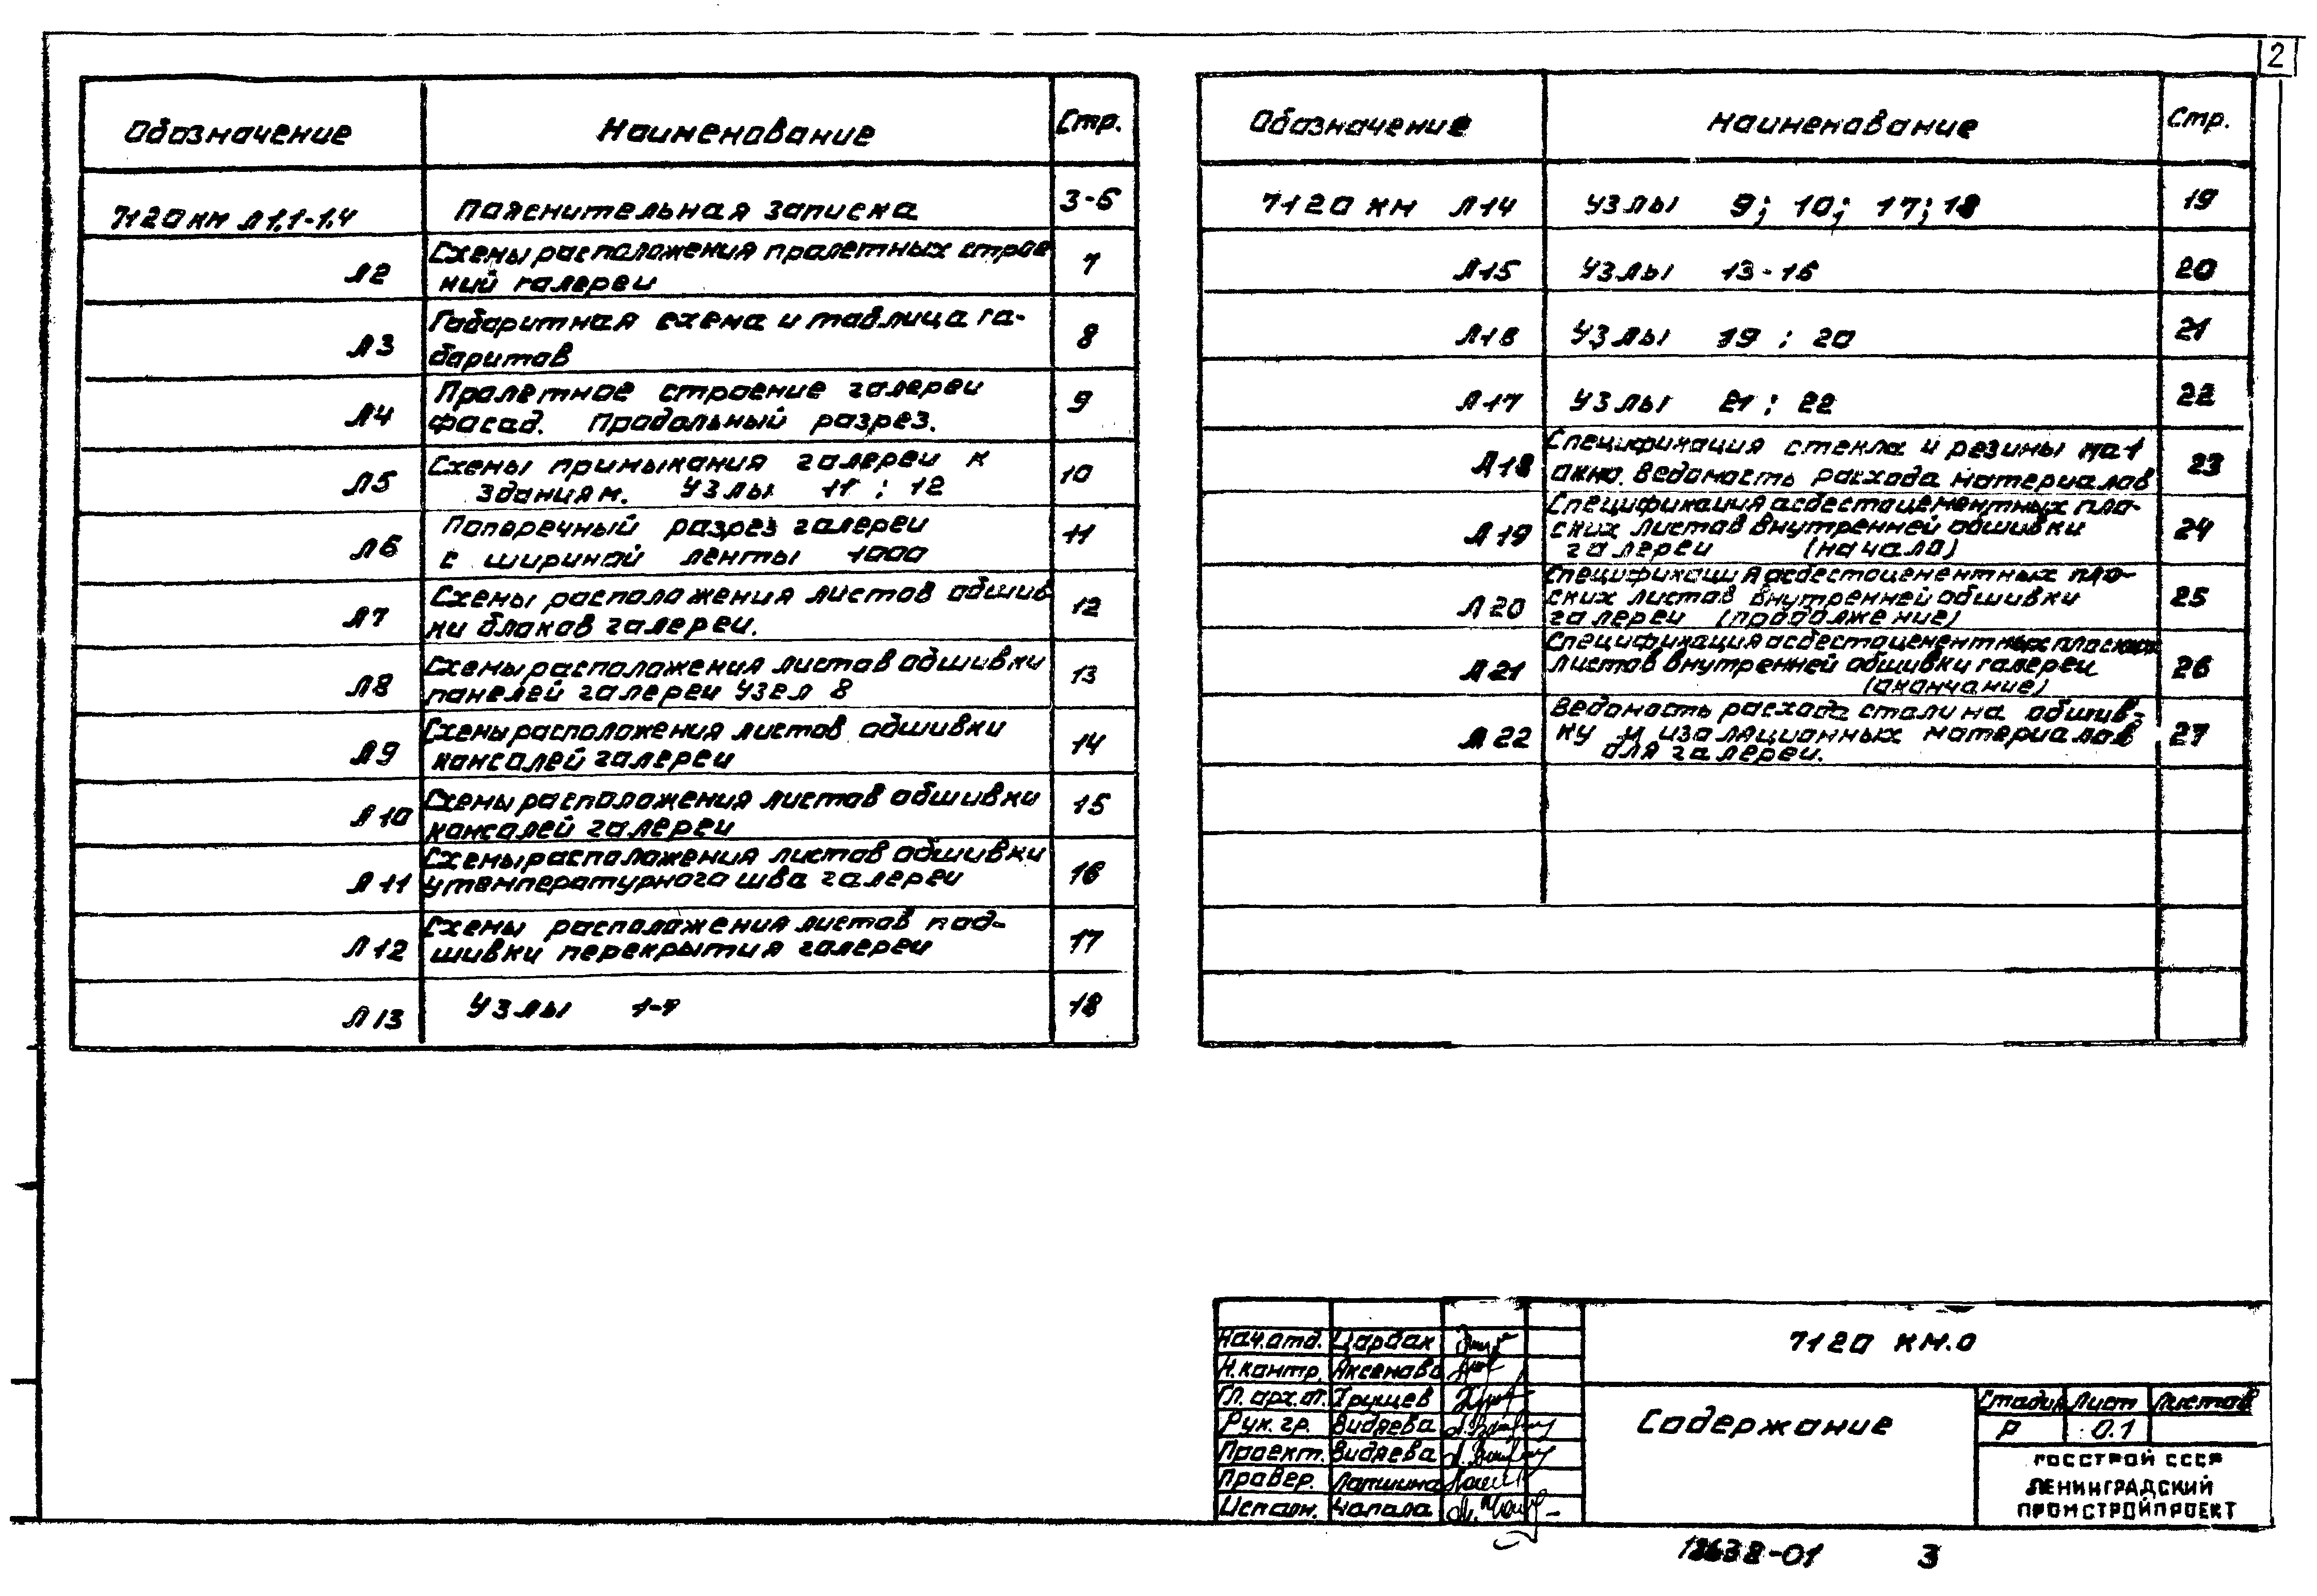 2
Обозначение Наименование Стр.
7120 км Л1.1-1.4 Пояснительная записка 3-6
Л2 Схемы расположения пролетных строе
ний галереи 7
Л3 Габаритная схема и таблица га-
баритов 8
Л4 Пролетное строение галереи
фасад. Продольный разрез. 9
Л5 Схемы примыкания галереи к
зданиям. Узлы 11; 12 10
Л6 Поперечный разрез галереи
с шириной ленты 1000 11
Л7 Схемы расположения листов обшив
ки блоков галереи. 12
Л8 Схемы расположения листов обшивки
панелей галереи узел 8 13
Л9 Схемы расположения листов обшивки
консолей галереи 14
Л10 Схемы расположения листов обшивки
консолей галереи 15
Л11 Схемы расположения листов обшивки
у температурного шва галереи 16
Л12 Схемы расположения листов под-
шивки перекрытия галереи 17
Л13 Узлы 1-7 18
Обозначение Наименование Стр.
7120 км Л14 Узлы 9; 10; 17; 18 19
Л15 Узлы 13-16 20
Л16 Узлы 19; 20 21
Л17 Узлы 21; 22 22
Л18 Спецификация стекла и резины на 1
окно. Ведомость расхода материалов 23
Л19 Спецификация асбестоцементных пло-
ских листов внутренней обшивки
галереи (начало) 24
Л20 Спецификация асбестоцементных пло-
ских листов внутренней обшивки
галереи (продолжение) 25
Л21 Спецификация асбестоцементных плоских
листов внутренней обшивки галереи
(окончание) 26
Л22 Ведомость расхода стали на обшив-
ку и изоляционных материалов
для галереи. 27
Нач.отд. Царбак
Н.контр. Аксенова
Гл.арх.от. Хрущев
Рук.гр. Видяева
Проект. Видяева
Провер. Лапшина
Исполн. Чапала
7120 КМ.0
Содержание
Стадия Лист Листов
Р 0.1
ГОССТРОЙ СССР
ЛЕНИНГРАДСКИЙ
ПРОМСТРОЙПРОЕКТ
18638-01 3